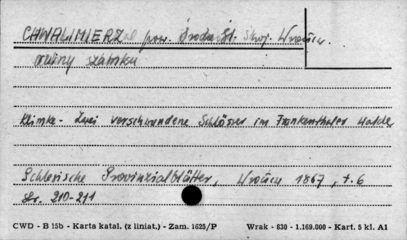 CHWALIMIERZ pow. Środa Śl. woj. Wrocław.
ruiny zamku
Klimke - Zwei verschwundene Schlösser im Frankenthaler Walde
Schlesische Provinzialblätter, Wrocław 1867, t. 6
str. 210-211
CWD - B 15b - Karta katal. (z liniat.) - Zam. 1625/P Wrak - 830 - 1.169.000 - Kart. 5 kl. A1